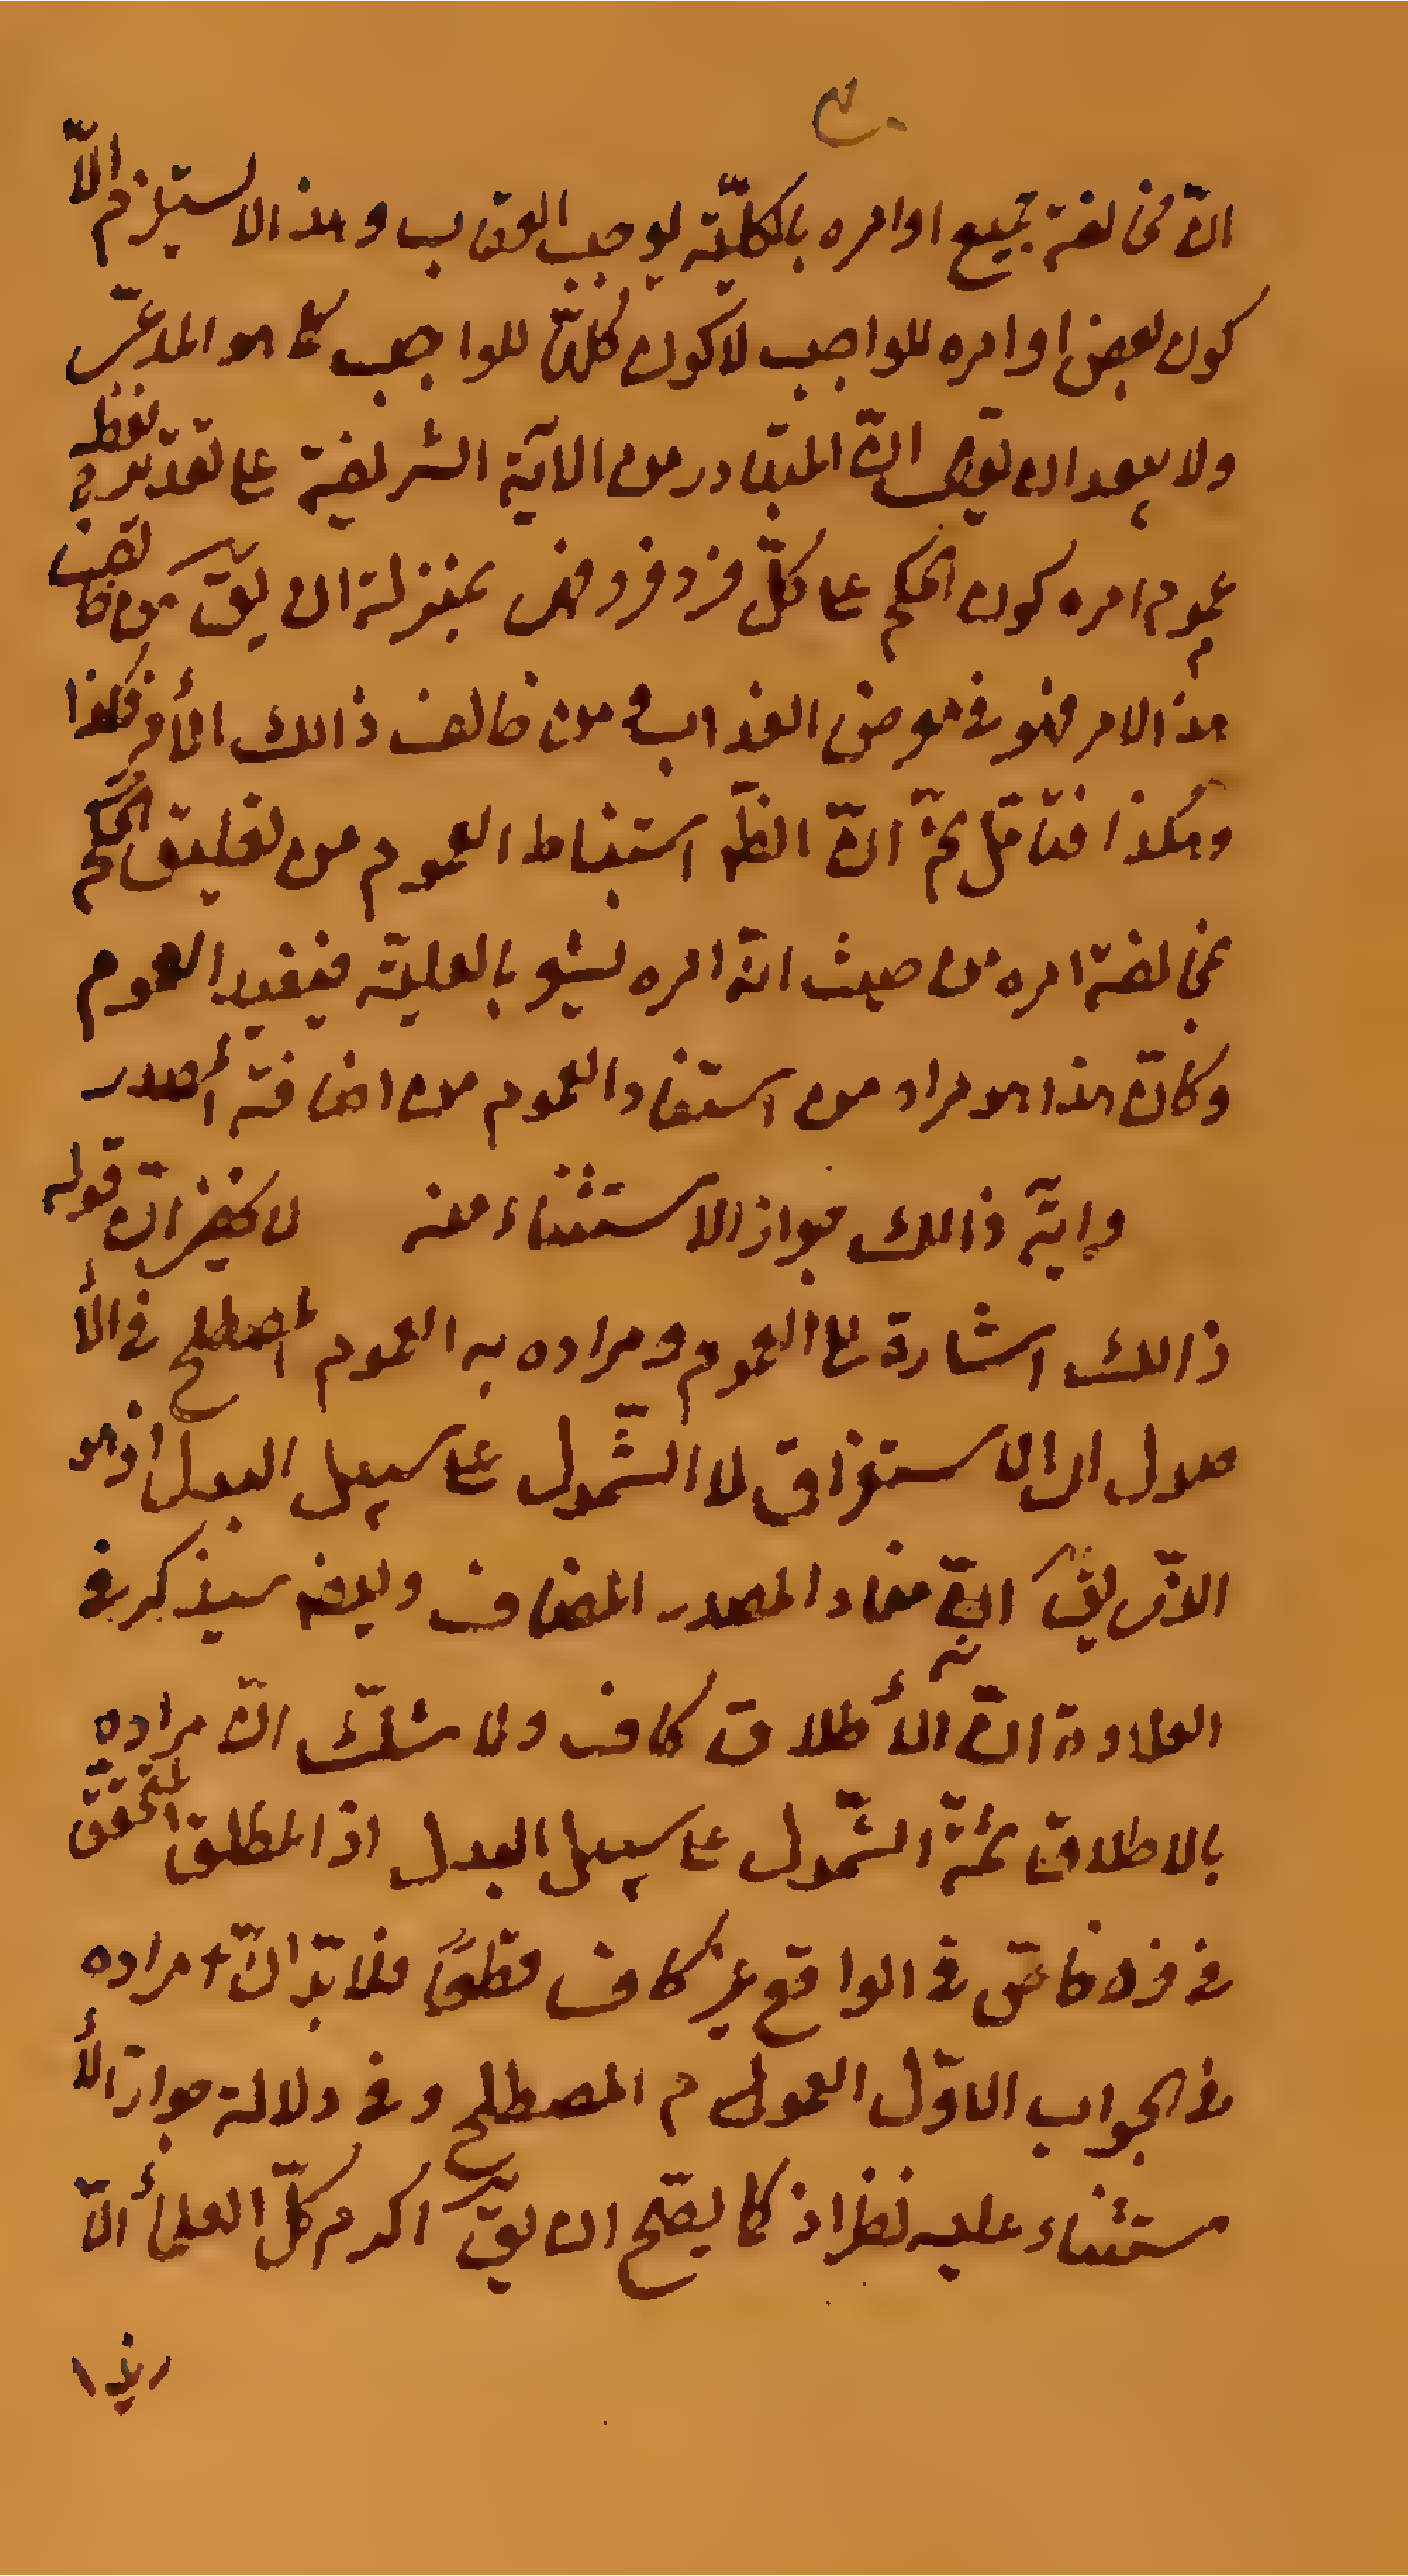 انّ مخالفة جميع اوامره بالكلّيّة يوجب العقاب وهذا لا يستلزم الّا
كون بعض اوامره للواجب لا كون كلّها للواجب كما هو المدعى
ولا يبعد ان يقال انّ المتبادر من الآية الشريفة على تقدير
عموم امره كون الحكم على كلّ فرد فرد فهى بمنزلة ان يقّ من خالف
هذا الامر فهو فى معرض العذاب ومن خالف ذالك الأمر فكذا
وهكذا فتأمّل ثمّ انّ الظّ استنباط العموم من تعليق الحكم
بمخالفة امره من حيث انّه امره يشعر بالعليّة فيفيد العموم
وكانّ هذا هو مراد من استفاد العموم من اضافة المصدر
وايّة ذالك جواز الاستثناء منه لا يخفى انّ قوله
ذالك اشارة الى العموم ومراده به العموم المصطلح فى الأ
صول اى الاستغراق لا الشّمول على سبيل البدل اذ هو
الذى يقّ انّه مفاد المصدر المضاف وايضا سيذكر فى
العلاوة انّ الأطلاق كاف ولا شكّ انّ مراده
بالاطلاق ثمّة الشّمول على سبيل البدل اذ المطلق المتحقّق
فى فرد خاصّ فى الواقع غير كاف قطعاً فلا بدّ انّ مراده
فى الجواب الاوّل العموم المصطلح وفى دلالة جواز الأ
ستثناء عليه نظر اذ كما يصّح ان يقّ اكرم كلّ العلمأ الّا
زيدا